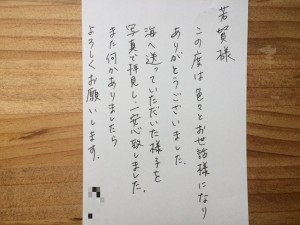 若賀様
この度は色々とお世話様になり
ありがとうございました。
海へ送っていただいた様子を
写真で拝見し、一安心致しました。
また何かありましたら
よろしくお願いします。